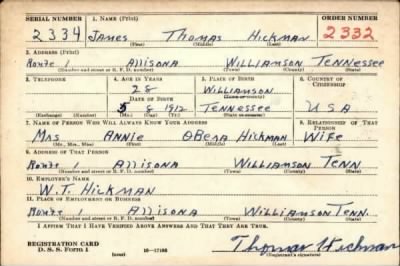 SERIAL NUMBER 1. NAME (Print) ORDER NUMBER
2334 JAMES THOMAS HICKMAN 2332
(First) (Middle) (Last)
2. ADDRESS (Print)
Route 1 ALLISONA WILLIAMSON TENNESSEE
(Number and street or R. F. D. number) (Town) (County) (State)
3. TELEPHONE 4. AGE IN YEARS 5. PLACE OF BIRTH 6. COUNTRY OF CITIZENSHIP
28 WILLIAMSON
DATE OF BIRTH (Town or county)
8 1912 TENNESSEE U S A
(Exchange) (Number) (Mo.) (Day) (Yr.) (State or country)
7. NAME OF PERSON WHO WILL ALWAYS KNOW YOUR ADDRESS 8. RELATIONSHIP OF THAT PERSON
MRS ANNIE OBERA HICKMAN WIFE
(Mr., Mrs., Miss) (First) (Middle) (Last)
9. ADDRESS OF THAT PERSON
Route 1 ALLISONA WILLIAMSON TENN
(Number and street or R. F. D. number) (Town) (County) (State)
10. EMPLOYER'S NAME
W.T. HICKMAN
11. PLACE OF EMPLOYMENT OR BUSINESS
Route ALLISONA WILLIAMSON TENN.
(Number and street or R. F. D. number) (Town) (County) (State)
I AFFIRM THAT I HAVE VERIFIED ABOVE ANSWERS AND THAT THEY ARE TRUE.
REGISTRATION CARD
D. S. S. Form 1 (over) 16—17105 Thomas Hickman
(Registrant's signature)